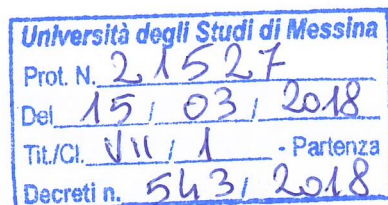 Università degli Studi di Messina
Prot. N. 21527
Del 15 / 03 / 2018
Tit./Cl. VII / 1 - Partenza
Decreti n. 543 / 2018